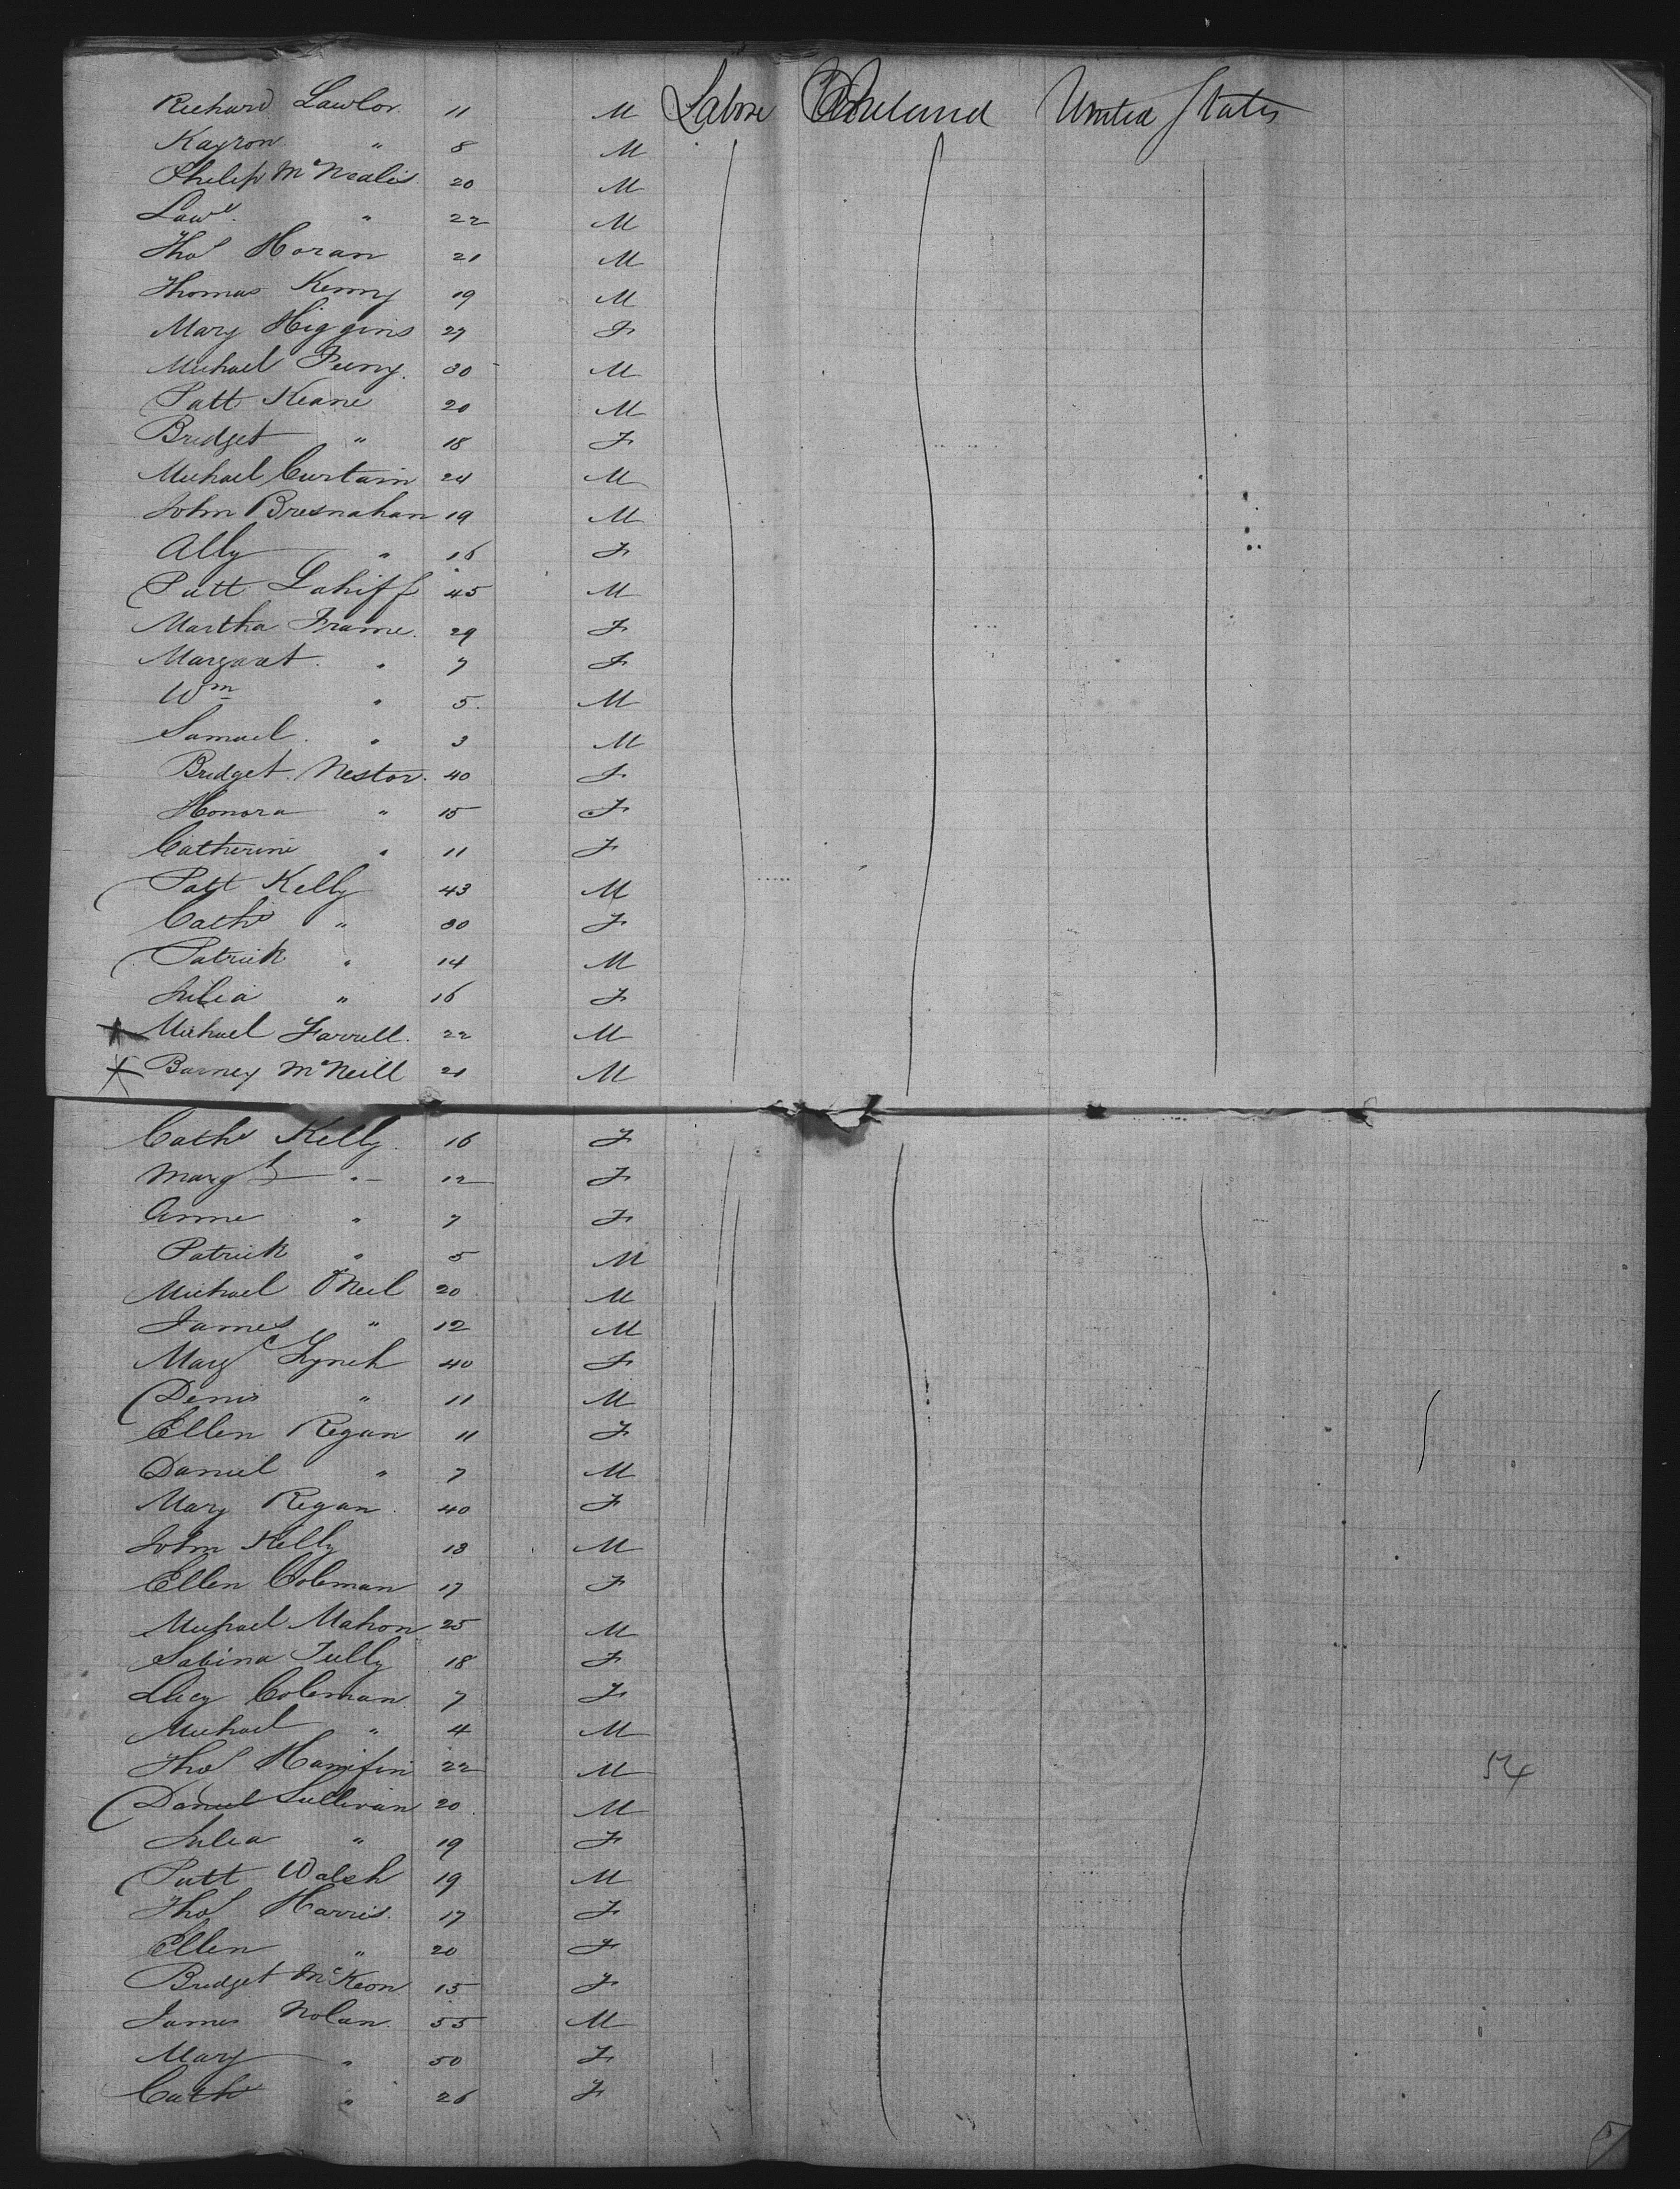 Richard Lawlor. 11 M Labore Ireland United States
Kayron " 8 M
Philip McNealis 20 M
Lawe. " 22 M
Thos Horan 21 M
Thomas Kenny 19 M
Mary Higgins 27 F
Michael Feeny. 30 M
Patt Keane 20 M
Bridget " 18 F
Michael Curtain 24 M
John Bresnahan 19 M
Ally " 16 F
Patt Lahiff 45 M
Martha Frame. 29 F
Margaret. " 7 F
Wm " 5. M
Samuel. " 3 M
Bridget. Nestor. 40 F
Honora " 15 F
Catherine " 11 F
Patt Kelly 43 M
Cathe " 30 F
Patrick " 14 M
Julia " 16 F
Michael Farrell. 22 M
Barney McNeill 21 M
Cathe Kelly. 16 F
Margt " 12 F
Anne " 7 F
Patrick " 5 M
Michael ONeil 20 M
James " 12 M
Mary Lynch 40 F
Denis " 11 M
Ellen Regan 11 F
Daniel " 7 M
Mary Regan. 40 F
John Kelly 18 M
Ellen Coleman 17 F
Michael Mahon 25 M
Sabina Tully 18 F
Lucy Coleman 7 F
Michael " 4 M
Thos Hanifin 22 M 54
Daniel Sullivan 20. M
Julia " 19 F
Patt Walsh 19 M
Thos Harris. 17 F
Ellen " 20 F
Bridget McKeon 15 F
James Nolan. 55 M
Mary " 50 F
Cathe " 26 F